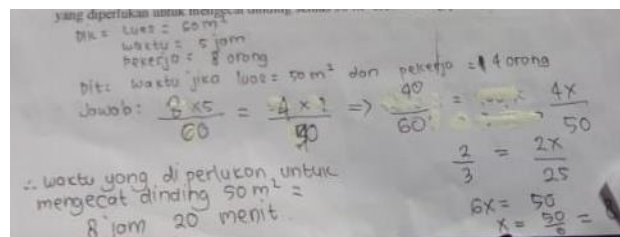 yang diperlukan untuk mengecat dinding
Dik = Luas = 60 m²
waktu = 5 jam
pekerja = 8 orang
Dit: waktu jika luas = 50 m² dan pekerja = 4 orang
Jawab: 8 x 5 / 60 = 4 x ? / 50 => 40 / 60 = 4x / 50
2 / 3 = 2x / 25
∴ waktu yang diperlukan untuk
mengecat dinding 50 m² =
8 jam 20 menit.
6x = 50
x = 50 / 6 = 8